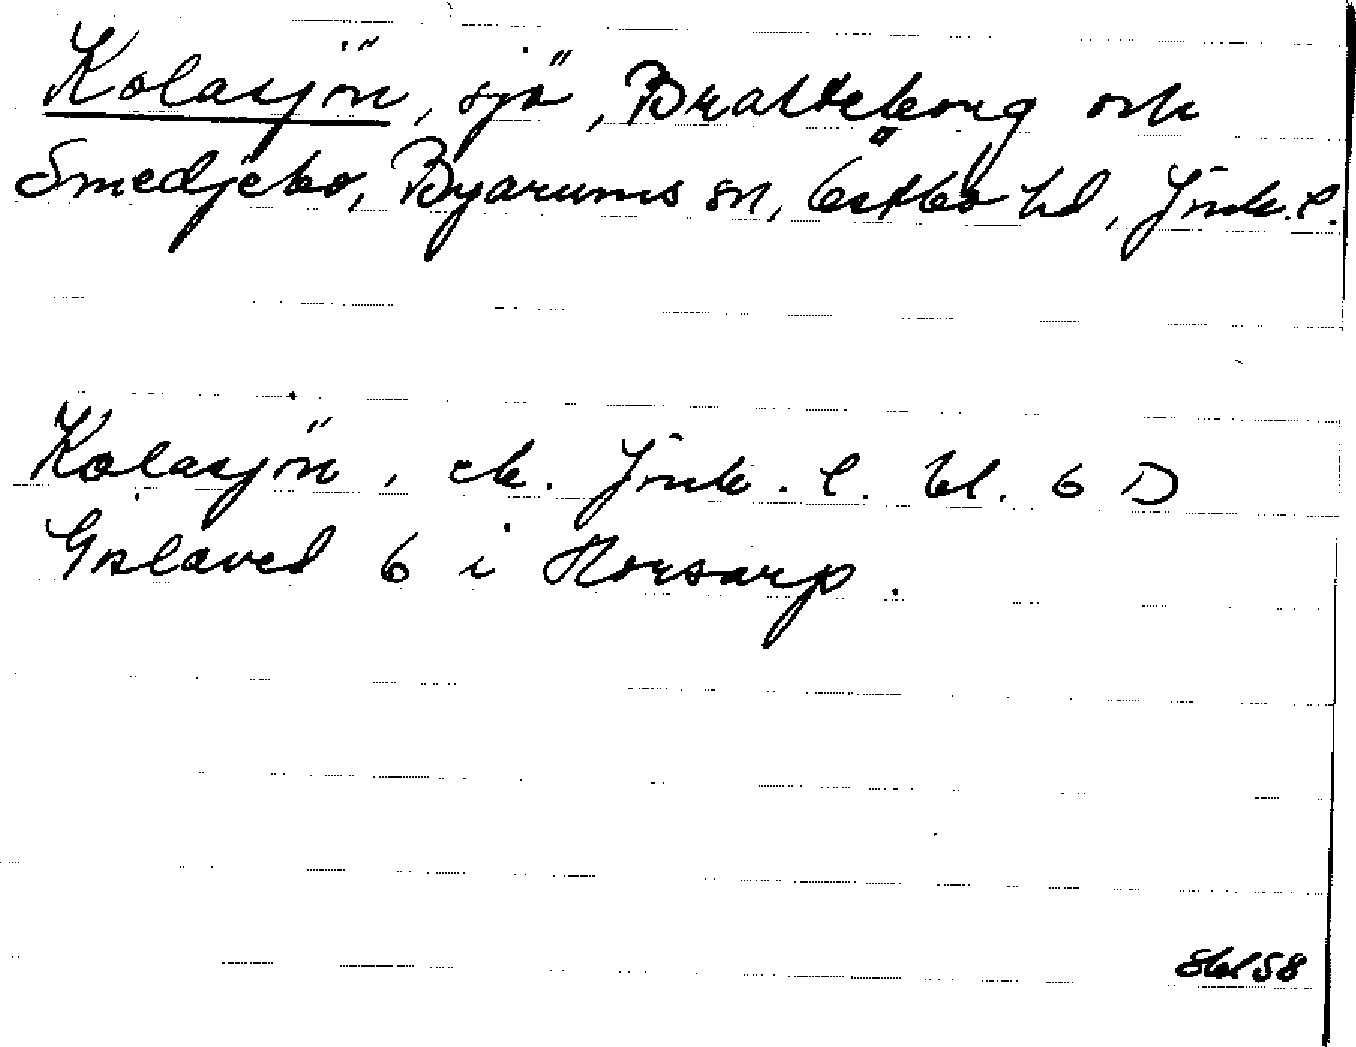 Kolasjön, sjö, Bratteborg och
Smedjebo, Byarums sn, Östbo hd, Jönk. l.
Kolasjön, ek. Jönk. l. bl. 6 D
Gislaved 6 i Horsarp.